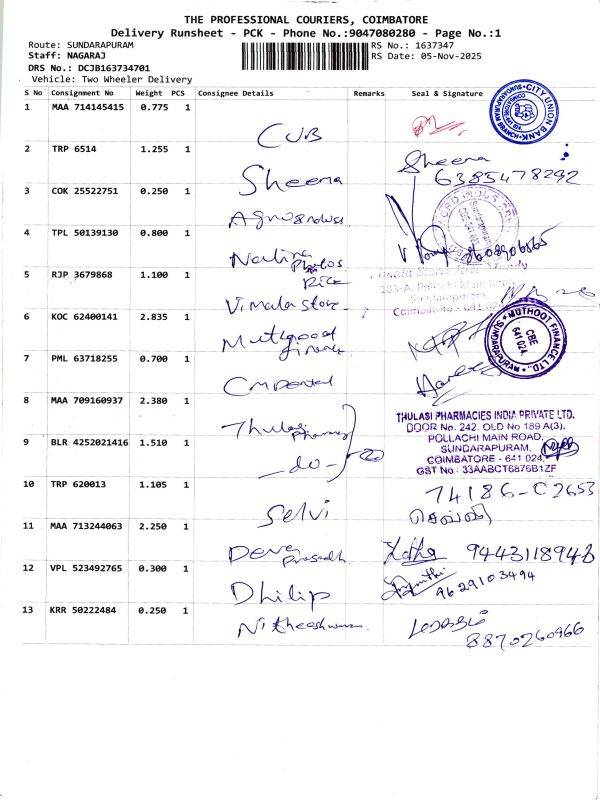 THE PROFESSIONAL COURIERS, COIMBATORE
Delivery Runsheet - PCK - Phone No.:9047080280 - Page No.:1
Route: SUNDARAPURAM
RS No.: 1637347
Staff: NAGARAJ
RS Date: 05-Nov-2025
DRS No.: DCJB163734701
Vehicle: Two Wheeler Delivery
S No Consignment No Weight PCS Consignee Details Remarks Seal & Signature
1 MAA 714145415 0.775 1 CUB
CITY UNION BANK
SUNDARAPURAM BRANCH
2 TRP 6514 1.255 1 Sheema Sheena
6385478292
3 COK 25522751 0.250 1
4 TPL 50139130 0.800 1 Photos
5 RJP 3679868 1.100 1 Vimala store
Sundarapuram
Coimbatore - 641 0
6 KOC 62400141 2.835 1 finance
MUTHOOT FINANCE LTD.
SUNDARAPURAM
CBE
641 024.
7 PML 63718255 0.700 1
8 MAA 709160937 2.380 1 Thulasi pharmacy
THULASI PHARMACIES INDIA PRIVATE LTD.
DOOR No. 242, OLD No 189 A(3).
POLLACHI MAIN ROAD,
SUNDARAPURAM,
COIMBATORE - 641 024.
GST No : 33AABCT6876B1ZF
9 BLR 4252021416 1.510 1 -do-
10 TRP 620013 1.105 1 Selvi 74186-02653
செல்வி
11 MAA 713244063 2.250 1 Deva prasadh 9443118943
12 VPL 523492765 0.300 1 Dhilip
9629103494
13 KRR 50222484 0.250 1 Nitheeshwaran
8870260966